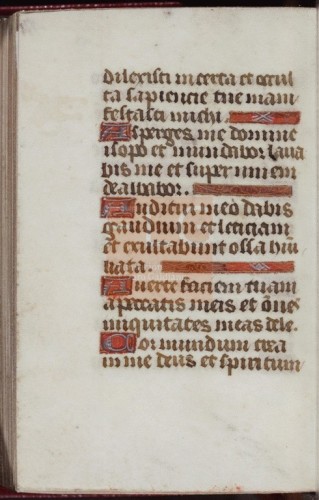 dilexisti incerta et occul
ta sapiencie tue mani
festasti michi.
Asperges me domine
isopo et mundabor laua
bis me et super niuem
dealbabor.
Auditui meo dabis
gaudium et leticiam
et exultabunt ossa hūi
liata.
Auerte faciem tuam
a peccatis meis et ōnes
iniquitates meas dele.
Cor mundum crea
in me deus et spiritum